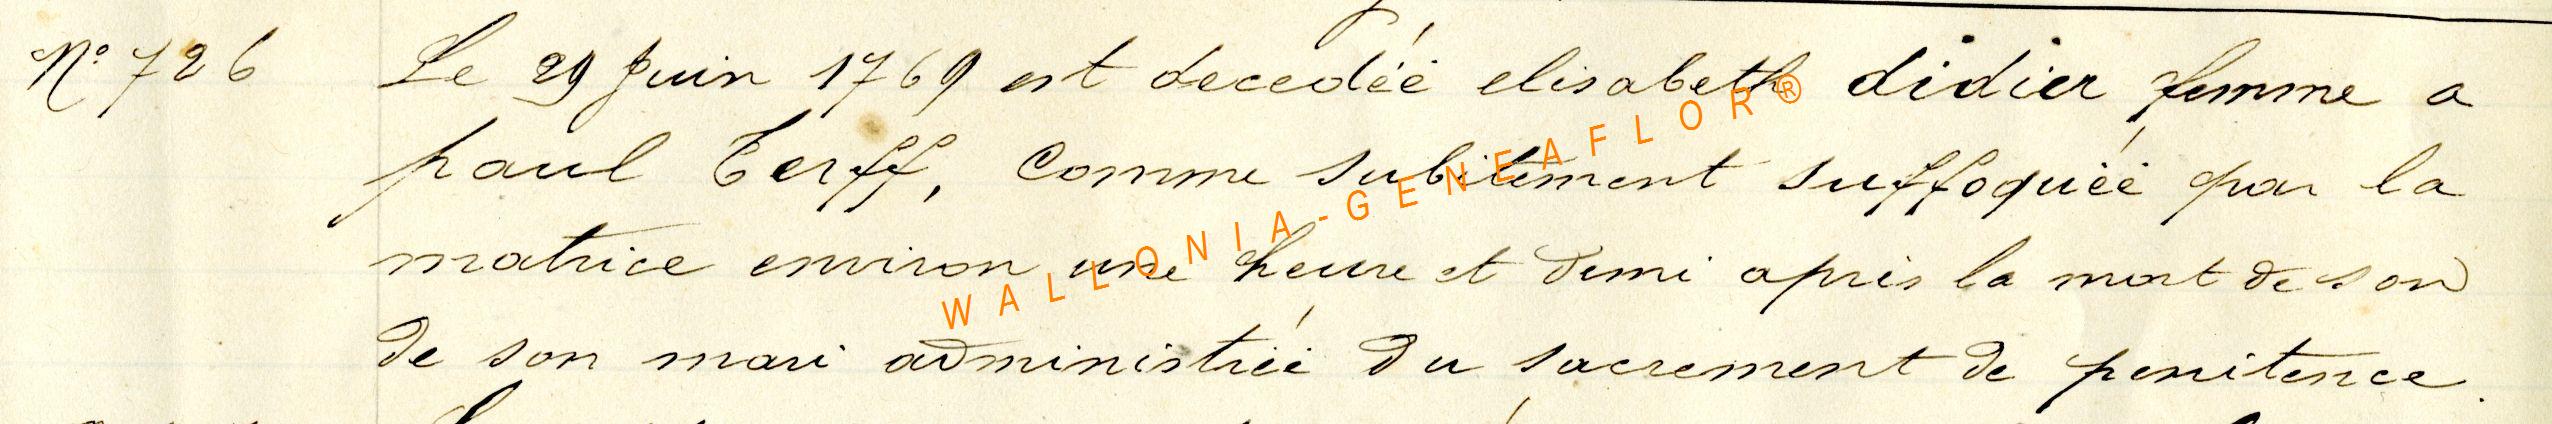 N° 726 Le 29 Juin 1769 est decedéé elisabeth didier femme a
paul Terff, Comme subitement suffoquéé par la
matrice environ une heure et demi apris la mort de son
de son mari administréé du sacrement de penitence.
WALLONIA-GENEAFLOR®